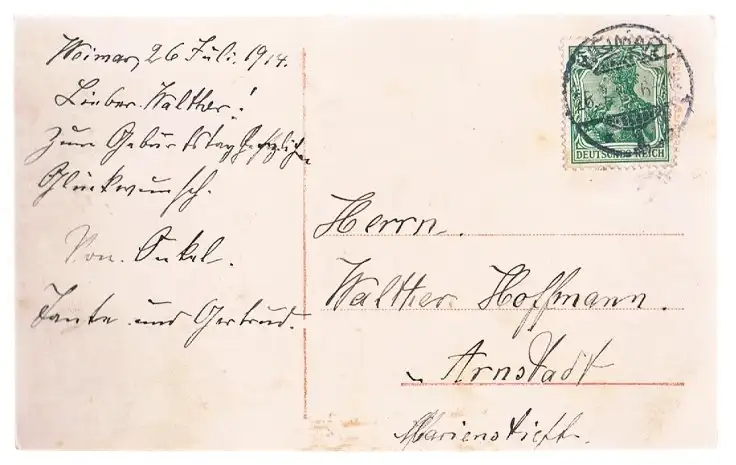 Weimar, 26 Juli. 1914.
Lieber Walther!
Zum Geburtstag herzlichen
Glückwunsch.
Von. Onkel.
Tante und Gertrud.
WEIMAR
26.
DEUTSCHES REICH
Herrn.
Walther Hoffmann.
Arnstadt
Marienstift.